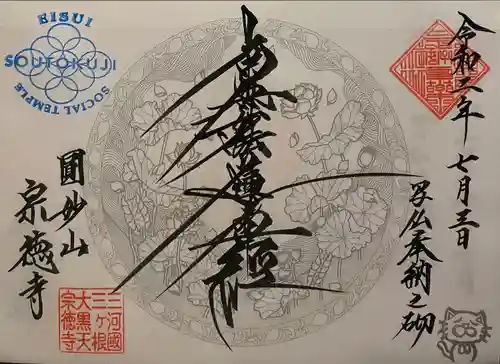 EISUI
SOUTOKUJI
SOCIAL TEMPLE
令和二年
七月三日
写仏奉納之砌
南無妙法蓮華経
圓妙山
宗徳寺
三河國
三ヶ根
大黒天
宗徳寺